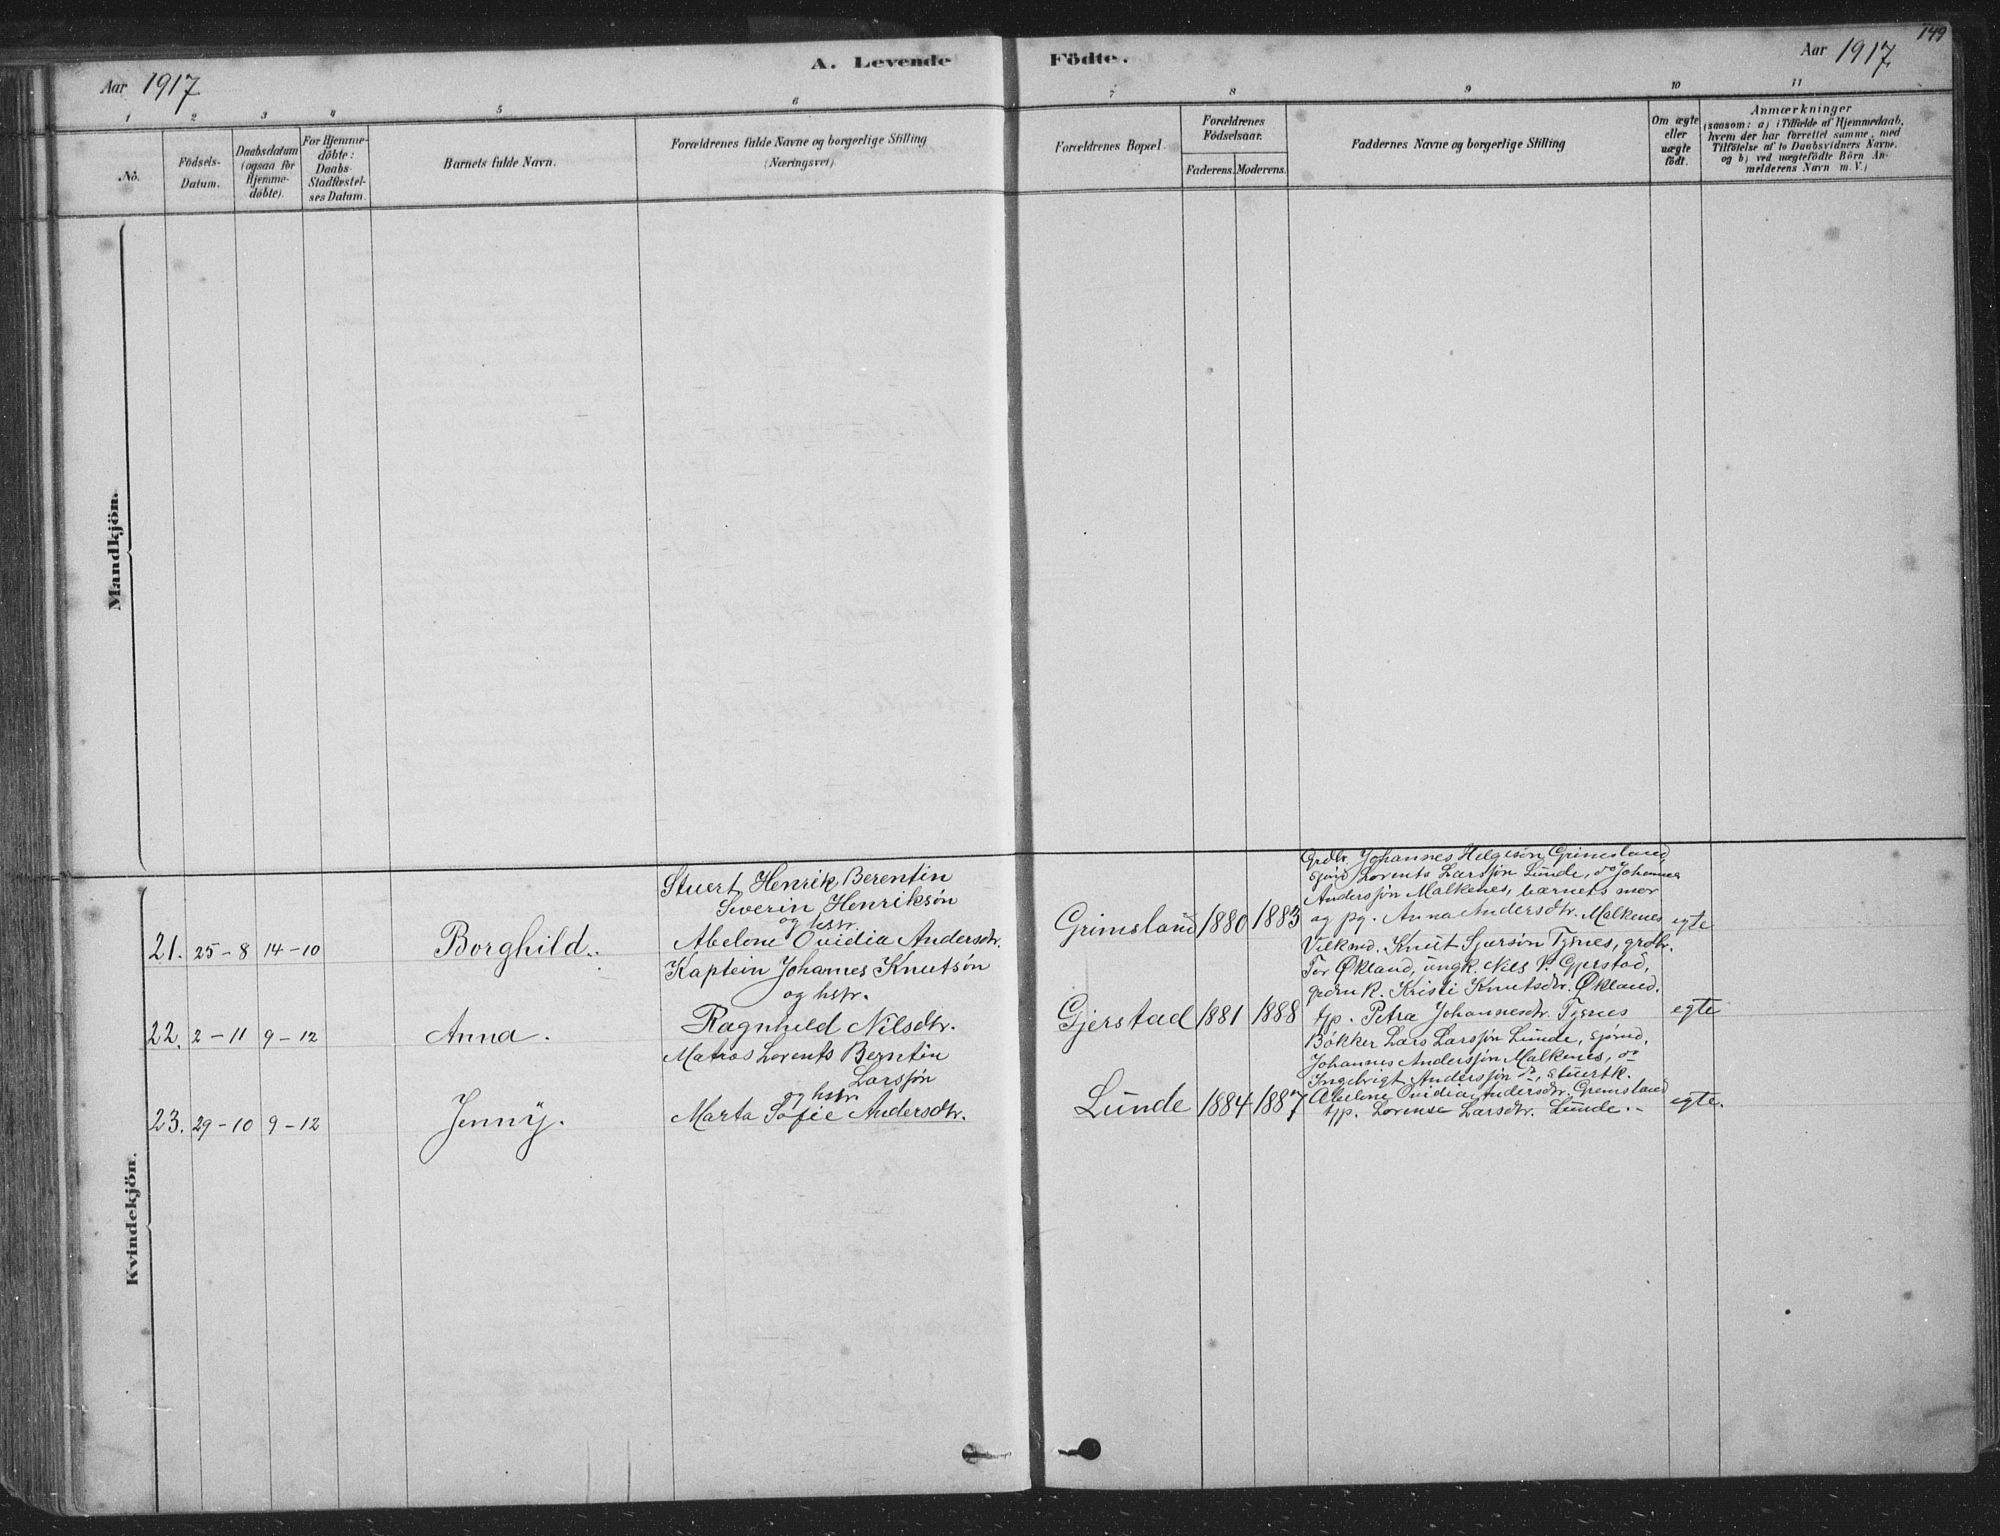 149
Aar 1917
A. Levende Födte.
Aar 1917
1 2 3 4 5 6 7 8 9 10 11
No.
Födsels-
Datum.
Daabsdatum
(ogsaa for
Hjemme-
döbte).
For Hjemme-
döbte:
Daabs-
Stadfæstel-
ses Datum.
Barnets fulde Navn.
Forældrenes fulde Navne og borgerlige Stilling
(Næringsvei).
Forældrenes Bopæl.
Forældrenes
Födselsaar.
Faderens. Moderens.
Faddernes Navne og borgerlige Stilling
Om ægte
eller
uægte
födt.
Anmærkninger
(saasom: a) i Tilfælde af Hjemmedaab,
hvem der har forrettet samme, med
Tilföielse af to Daabsvidners Navne,
og b) ved uægtefödte Börn An-
melderens Navn m. V.)
Mandkjön.
Kvindekjön.
21. 25-8 14-10 Borghild.
Stuert Henrik Berentin
Severin Henriksøn
og hstr.
Abelone Ovidia Andersdtr.
Grimsland 1880 1883
Grdbr. Johannes Helgesøn Grimsland
sjømd Lorents Larssjøn Lunde, do Johannes
Anderssjøn Malkenes, barnets mor
og pg. Anna Andersdtr. Malkenes
egte
22. 2-11 9-12 Anna.
Kaptein Johannes Knutsøn
og hstr.
Ragnhild Nilsdtr.
Gjerstad 1881 1888
Knut Tysnes, grdbr.
Tor Økland, ungk. Nils P. Gjerstad,
Kristi Knutsdtr. Økland.
tjp. Petra Johannesdtr. Tysnes
egte
23. 29-10 9-12 Jenny.
Matros Lorents Berntin
Larssjøn
og hstr.
Marta Sofie Andersdtr.
Lunde 1884 1887
Bøkker Lars Larssjøn Lunde, sjømd.
Johannes Anderssjøn Malkenes, do
Ingebrigt Anderssjøn do, stuertk.
Abelone Ovidia Andersdtr. Grimsland
tjp. Lorense Larsdtr. Lunde.
egte.